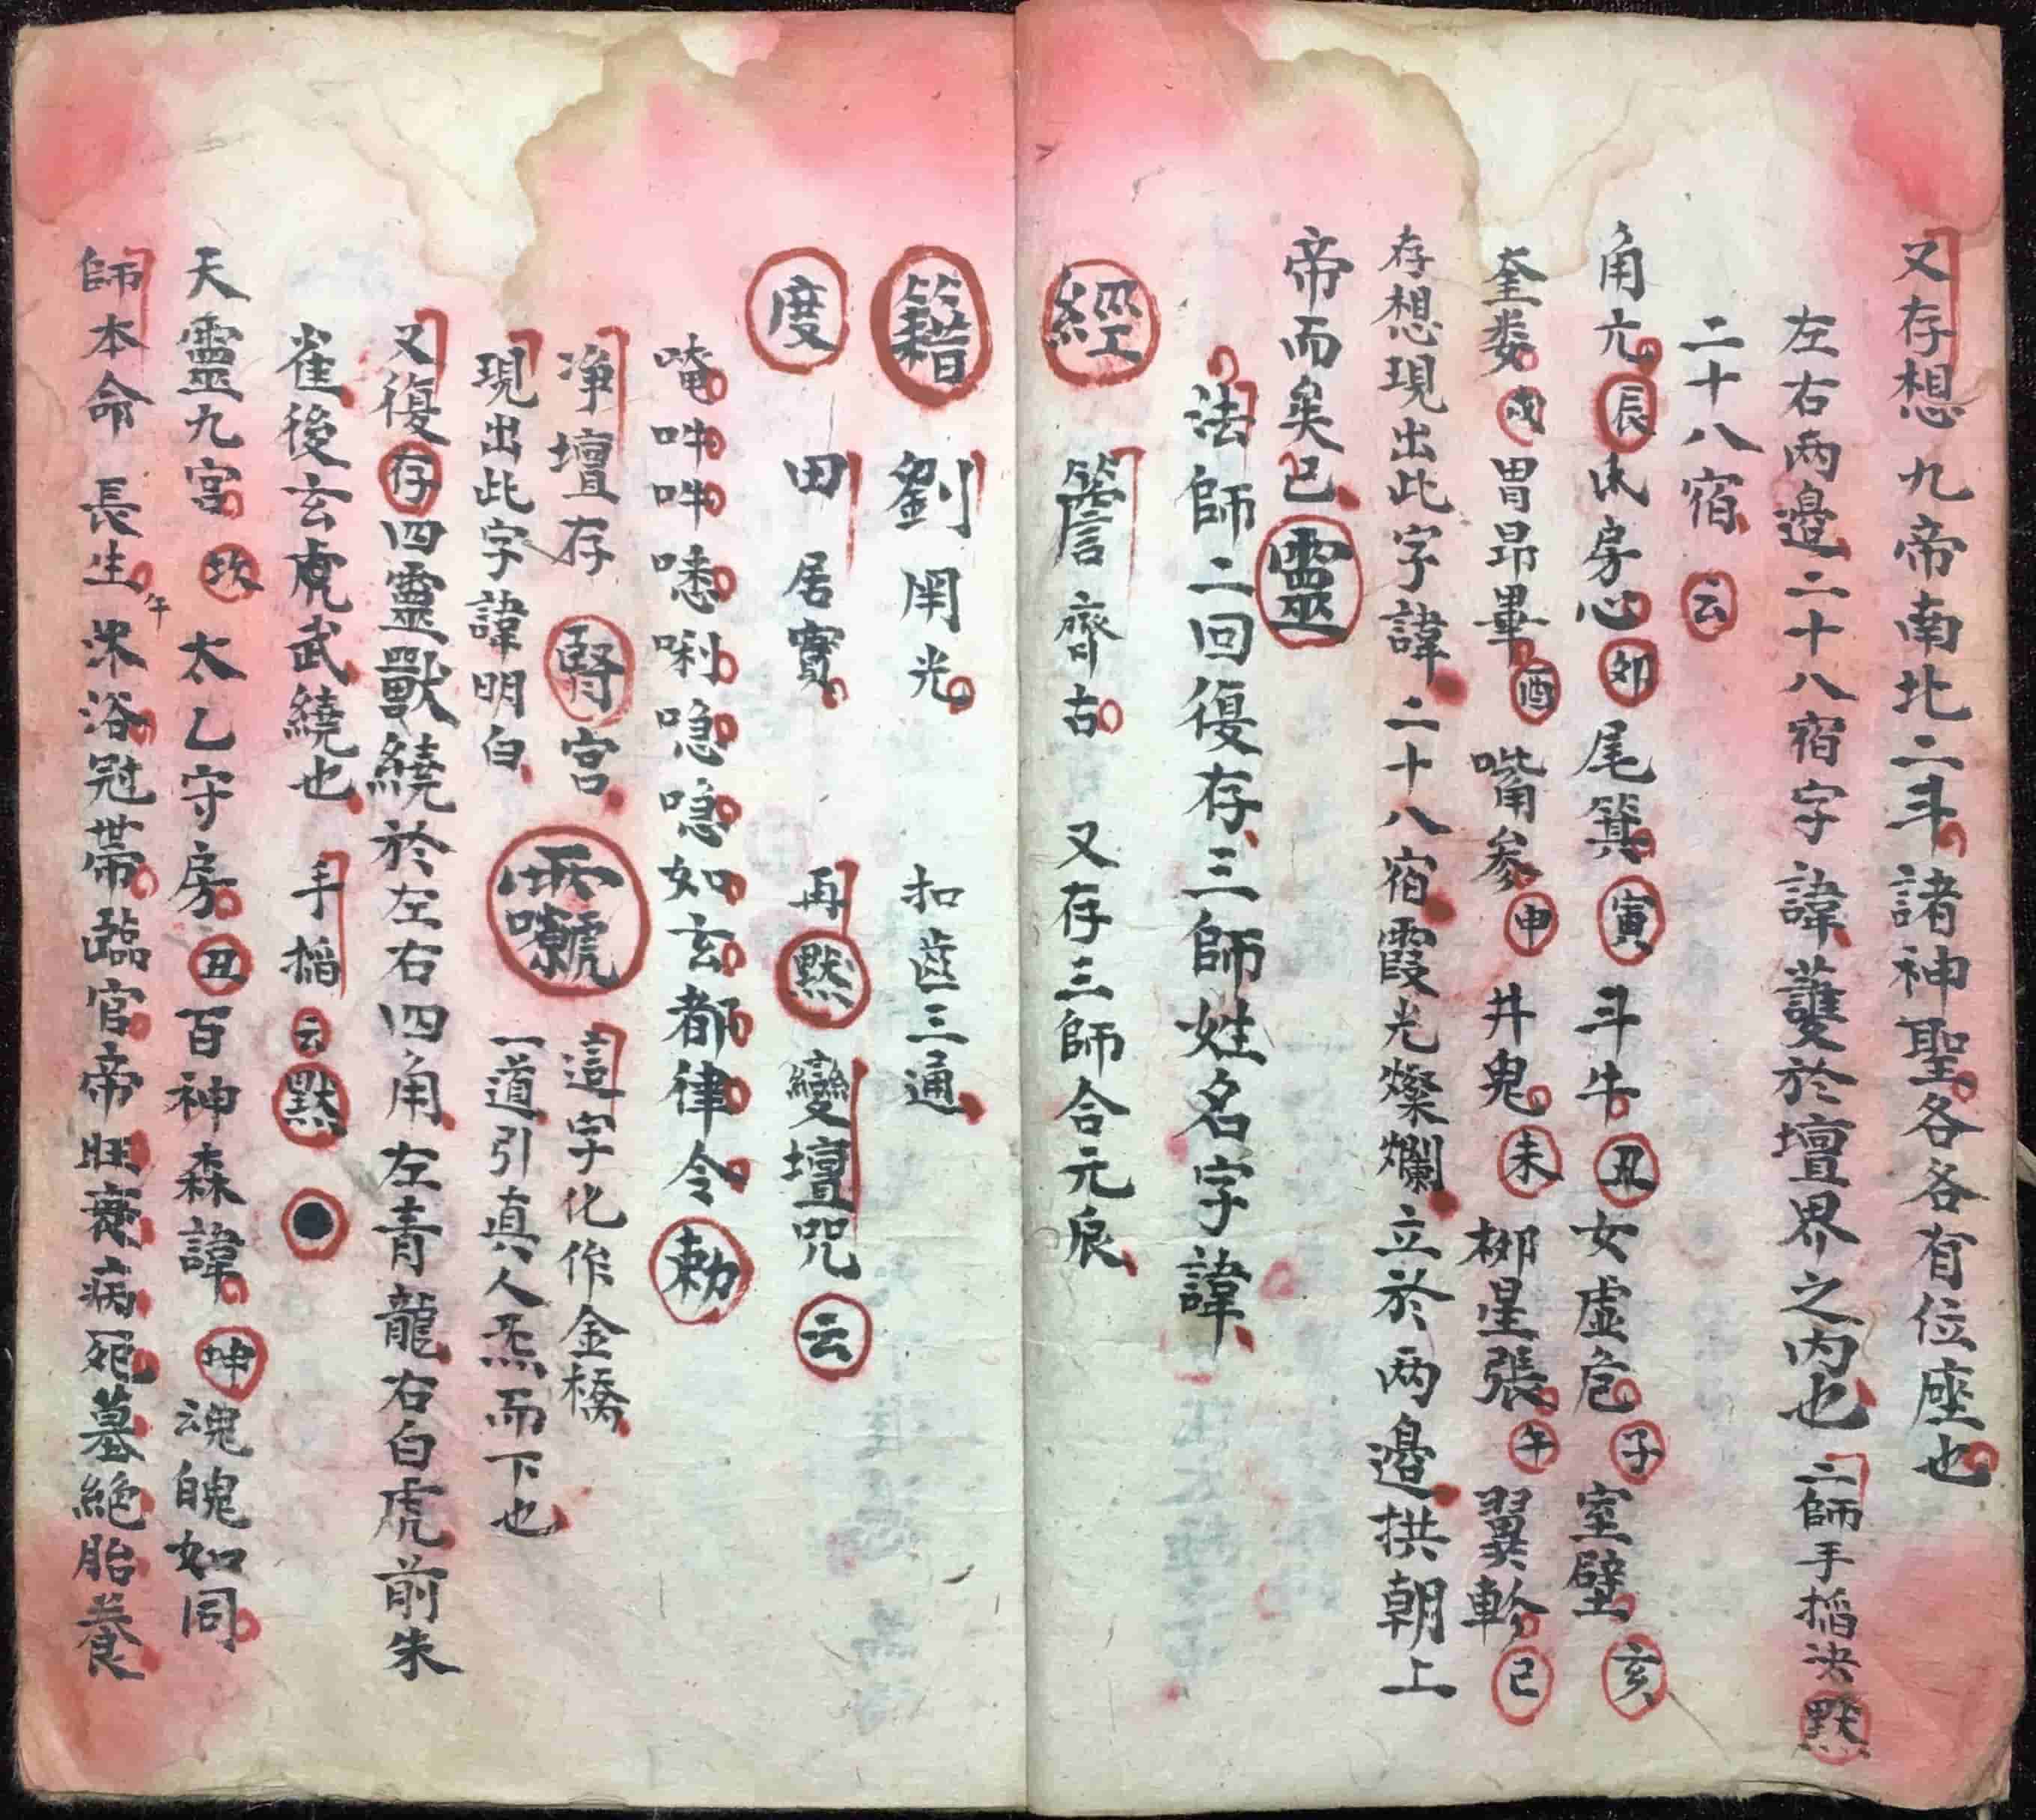 又存想九帝南北二斗諸神聖各各有位座也
左右兩邉二十八宿字諱護於壇界之内也 二師手搯决默
二十八宿 云
角亢辰氐房心卯尾箕寅斗牛丑女虛危子室壁亥
奎婁戌胃昴畢酉嘴參申井鬼未柳星張午翼軫巳
存想現出此字諱二十八宿霞光燦爛立於两邉拱朝上
帝而矣已靈
法師二回復存三師姓名字諱
經 詹齊古 又存三師合元辰
籍 劉用光 扣齒三通
度 田居實 再默變壇咒云
唵吽吽㗭唎㗯㗯如玄都律令敕
净壇存腎宮 這字化作金橋
現出此字諱明白 一道引真人炁而下也
又復存四靈獸繞於左右四角左青龍右白虎前朱
雀後玄虎武繞也 手搯云默
天靈九宮坎太乙守房丑百神森諱坤魂魄如同
師本命長生午沐浴冠帯臨官帝旺衰病死墓絶胎養